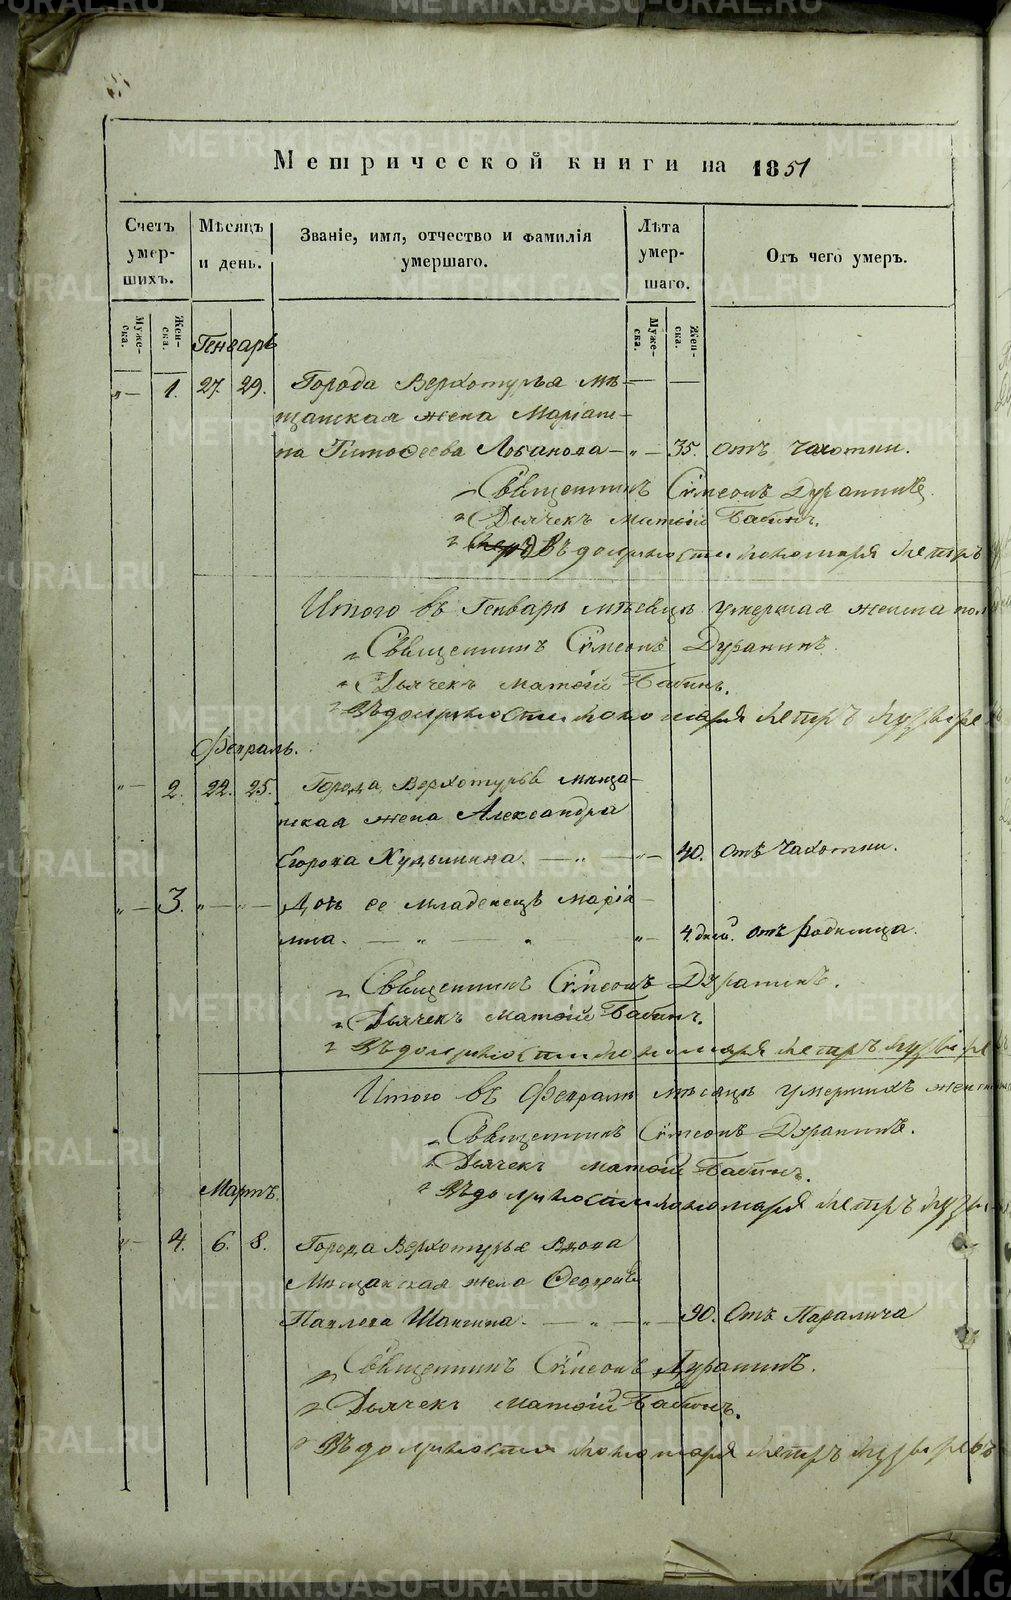 Метрической книги на 1851
Счетъ умер-шихъ.
Мѣсяцъ и день.
Званіе, имя, отчество и фамилія умершаго.
Лѣта умер-шаго.
Отъ чего умеръ.
Муже-ска.
Жен-ска.
Муже-ска.
Жен-ска.
Генварь
"— 1. 27. 29. Города Верхотурья мѣ-
щанская жена Маріам-
на Тимоѳеева Лобанова — " — 35. отъ чахотки.
Священникъ Сѵмеонъ Дуранинъ.
Дьячекъ Матѳій Бабинъ.
Въ должности пономаря Петръ
Итого въ Генварѣ мѣсяцѣ умершая женска пол
Священникъ Сѵмеонъ Дуранинъ.
Дьячекъ Матѳій Бабинъ.
Въ должности пономаря Петръ
Февраль.
"— 2. 22. 25. Города Верхотурья мѣща-
нская жена Александра
Егорова — " — " — 40. отъ чахотки.
"— 3. "— "— Дочь ее младенецъ Маріа-
мна. — " — " — "— 4. дней. отъ родимца.
Священникъ Сѵмеонъ Дуранинъ.
Дьячекъ Матѳій Бабинъ.
Въ должности пономаря Петръ
Итого въ Февралѣ мѣсяцѣ умершихъ женск
Священникъ Сѵмеонъ Дуранинъ.
Дьячекъ Матѳій Бабинъ.
Въ должности пономаря Петръ
Мартъ.
"— 4. 6. 8. Города Верхотурья вдова
Мѣщанская жена
Павлова Шангина. — " — " — 90. отъ Паралича
Священникъ Сѵмеонъ Дуранинъ.
Дьячекъ Матѳій Бабинъ.
Въ должности пономаря Петръ
METRIKI.GASO-URAL.RU